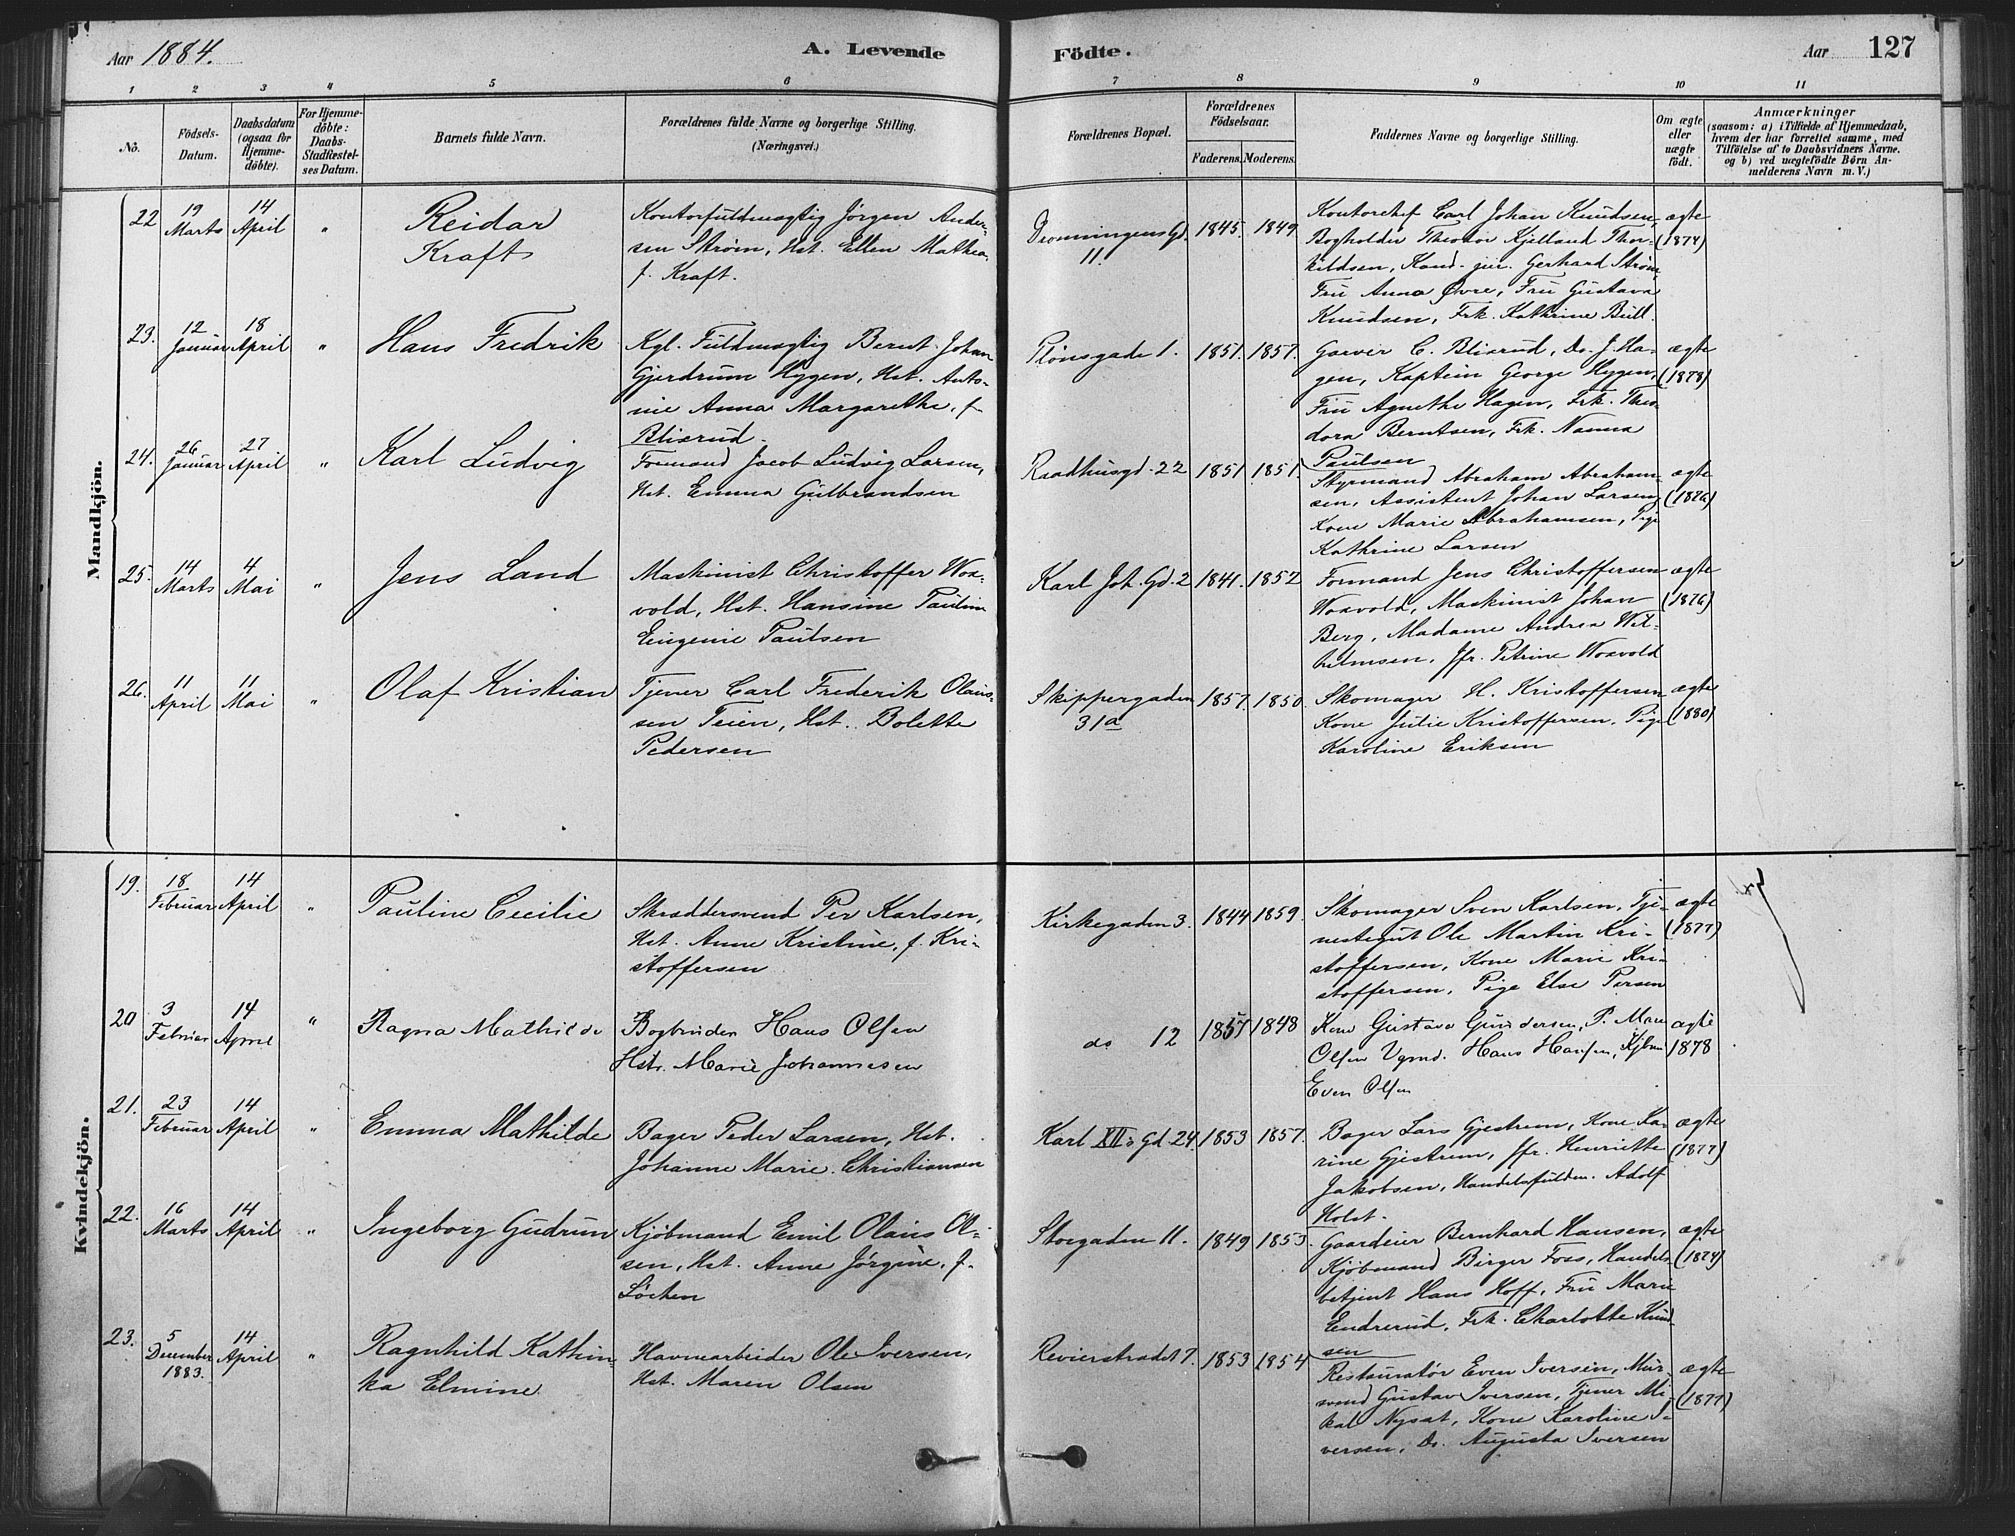 Aar 1884.
A. Levende Födte.
Aar 127
1 2 3 4 5 6 7 8 9 10 11
No.
Födsels-Datum.
Daabsdatum (ogsaa for Hjemme-döbte).
For Hjemme-döbte: Daabs-Stadfæstel-ses Datum.
Barnets fulde Navn.
Forældrenes fulde Navne og borgerlige Stilling.
(Næringsvei.)
Forældrenes Bopæl.
Forældrenes Födselsaar.
Faderens. Moderens.
Faddernes Navne og borgerlige Stilling.
Om ægte eller uægte födt.
Anmærkninger
(saasom: a) i Tilfælde af Hjemmedaab, hvem der har forrettet samme, med Tilföielse af to Daabsvidners Navne. og b) ved uægtefödte Börn Anmelderens Navn m. V.)
Mandkjön.
22 19 Marts 14 April "
Reidar
Kraft
Kontorfuldmægtig Jörgen Ander-
sen Ström, Hst. Ellen Mathea
f. Kraft.
Dronningens Gd.
11.
1845. 1849.
Kontorchef Carl Johan Knudsen,
Bogholder Theodor Kjelland Thor-
kildsen, Kand. jur. Gerhard Ström,
Fru Anna Övre, Fru Gustava
Knudsen, Frk. Kathrine Bull.
ægte
(1874)
23. 12 Januar 18 April "
Hans Fredrik
Kgl. Fuldmægtig Bernt Johan
Gjerdrum Hygen, Hst. Anto-
nie Anna Margarethe, f.
Blixrud.
Plönsgade 1.
1851. 1857.
Garver C. Blixrud, Do. J. Ha-
gen, Kaptein George Hygen,
Fru Agnethe Hagen, Frk. Theo-
dora Berntsen, Frk. Nanna
Paulsen
ægte
(1878)
24. 26 Januar 27 April "
Karl Ludvig
Formand Jacob Ludvig Larsen,
Hst. Emma Gulbrandsen
Raadhusgd. 22
1851 1851.
Styrmand Abraham Abraham-
sen, Assistent Johan Larsen,
Kone Marie Abrahamsen, Pige
Kathrine Larsen
ægte
(1876)
25. 14 Marts 4 Mai "
Jens Land
Maskinist Christoffer Wox-
vold, Hst. Hansine Pauline
Eugenie Paulsen
Karl Joh. Gd. 2
1841. 1852
Formand Jens Christoffersen
Woxvold, Maskinist Johan
Berg, Madame Andrea Wil-
helmsen, Jfr. Petrine Woxvold
ægte
(1876)
26. 11 April 11 Mai "
Olaf Kristian
Tjener Carl Frederik Olaus-
sen Teien, Hst. Bolette
Pedersen
Skippergaden
31a
1857. 1850.
Skomager H. Kristoffersen
Kone Julie Kristoffersen, Pige
Karoline Eriksen
ægte
(1880)
Kvindekjön.
19. 18 Februar 14 April "
Pauline Cecilie
Skræddersvend Per Karlsen,
Hst. Anne Kristine, f. Kri-
stoffersen
Kirkegaden 3.
1844 1859.
Skomager Sven Karlsen, Tje-
nestegut Ole Martin Kri-
stoffersen, Kone Marie Kri-
stoffersen, Pige Else Persen
ægte
(1877)
20 3 Februar 14 April "
Ragna Mathilde
Bogbinder Hans Olsen
Hstr. Marie Johannesen
do 12
1857 1848
Kone Gustava Gundersen, P. Mari
Olsen Vgmd. Hans Hansen, Kjbm
Even Olsen
ægte
1878
21. 23 Februar 14 April "
Emma Mathilde
Bager Peder Larsen, Hst.
Johanne Marie Christiansen
Karl XII's Gd. 24.
1853 1857.
Bager Lars Gjestrum, Kone Ka-
rine Gjestrum, Jfr. Henriette
Jakobsen, Handelsfuldm. Adolf
Holst.
ægte
(1877)
22. 16 Marts 14 April "
Ingeborg Gudrun
Kjöbmand Emil Olaus Ol-
sen, Hst. Anne Jörgine, f.
Löchen
Storgaden 11.
1849 1853.
Gaardeier Bernhard Hansen,
Kjöbmand Birger Foss, Handels-
betjent Hans Hoff, Fru Marie
Endrerud, Frk. Charlotte Knud-
sen
ægte
(1874)
23. 5 December 1883. 14 April "
Ragnhild Kathin-
ka Elmine
Havnearbeider Ole Iversen,
Hst. Maren Olsen
Revierstrædet 7.
1853 1854
Restauratör Even Iversen, Mur-
svend Gustav Iversen, Tjener Mi-
kal Nysæt, Kone Karoline I-
versen, Do. Augusta Iversen
ægte
(1877)